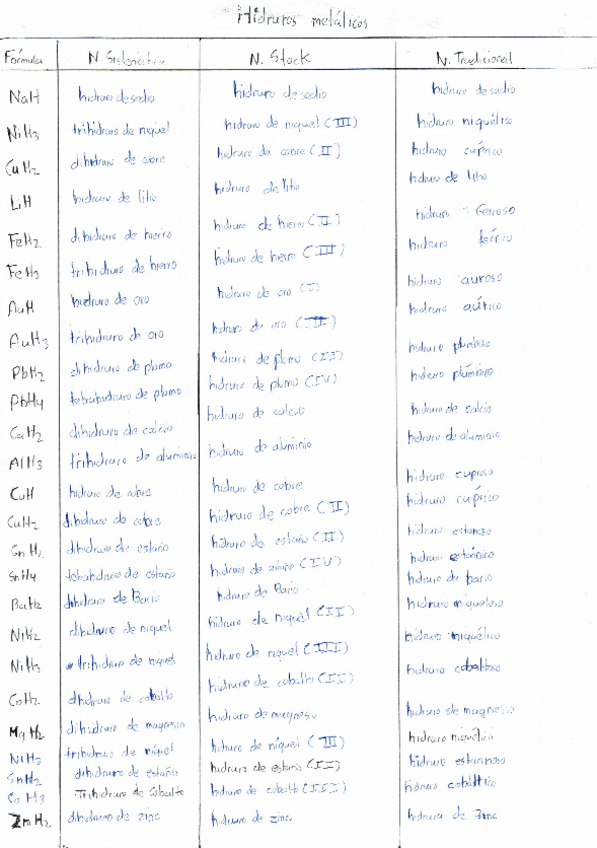 Hidruros metálicos
Fórmula N. Sistemática N. Stock N. Tradicional
NaH hidruro de sodio hidruro de sodio hidruro de sodio
NiH3 trihidruro de niquel hidruro de niquel (III) hidruro niquélico
CuH2 dihidruro de cobre hidruro de cobre (II) hidruro cúprico
LiH hidruro de litio hidruro de litio hidruro de litio
FeH2 dihidruro de hierro hidruro de hierro (II) hidruro ferroso
FeH3 trihidruro de hierro hidruro de hierro (III) hidruro férrico
AuH hidruro de oro hidruro de oro (I) hidruro auroso
AuH3 trihidruro de oro hidruro de oro (III) hidruro aúrico
PbH2 dihidruro de plomo hidruro de plomo (II) hidruro plumboso
PbH4 tetrahidruro de plomo hidruro de plomo (IV) hidruro
CaH2 dihidruro de calcio hidruro de calcio hidruro de calcio
AlH3 trihidruro de aluminio hidruro de aluminio hidruro de aluminio
CuH hidruro de cobre hidruro de cobre hidruro cuproso
CuH2 dihidruro de cobre hidruro de cobre (II) hidruro cúprico
SnH2 dihidruro de estaño hidruro de estaño (II) hidruro estanoso
SnH4 tetrahidruro de estaño hidruro de estaño (IV) hidruro estánnico
BaH2 dihidruro de Bario hidruro de Bario hidruro de bario
NiH2 dihidruro de niquel hidruro de niquel (II) hidruro niqueloso
NiH3 trihidruro de niquel hidruro de niquel (III) hidruro niquélico
CoH2 dihidruro de cobalto hidruro de cobalto (II) hidruro cobaltoso
MgH2 dihidruro de magnesio hidruro de magnesio hidruro de magnesio
NiH2 trihidruro de níquel hidruro de níquel (III) hidruro niquélico
SnH2 dihidruro de estaño hidruro de estaño (II) hidruro estannoso
CoH3 Trihidruro de Cobalto hidruro de cobalto (III) hidruro cobáltico
ZnH2 dihidruro de zinc hidruro de zinc hidruro de Zinc